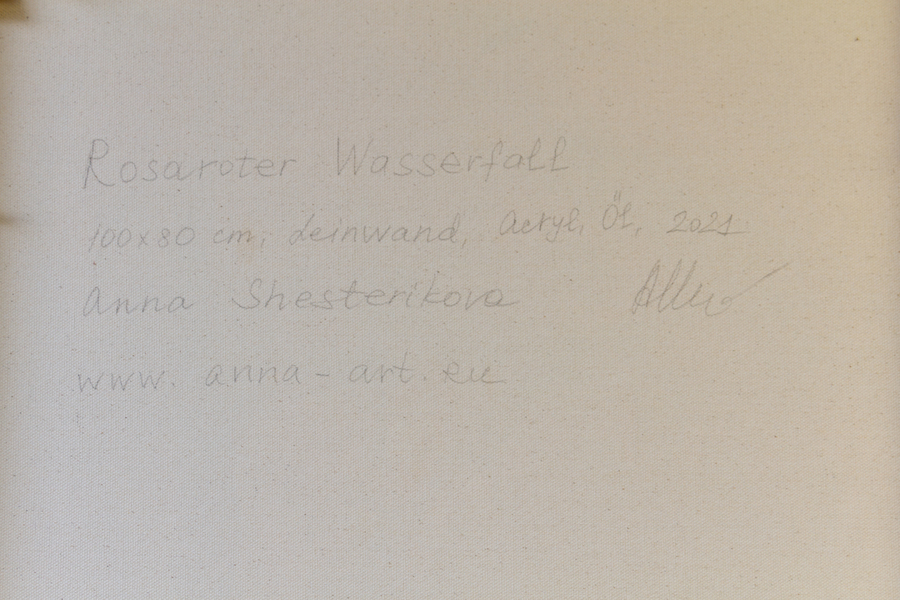 Rosaroter Wasserfall
100x80 cm, Leinwand, Acryl, Öl, 2021
Anna Shesterikova
www.anna-art.eu